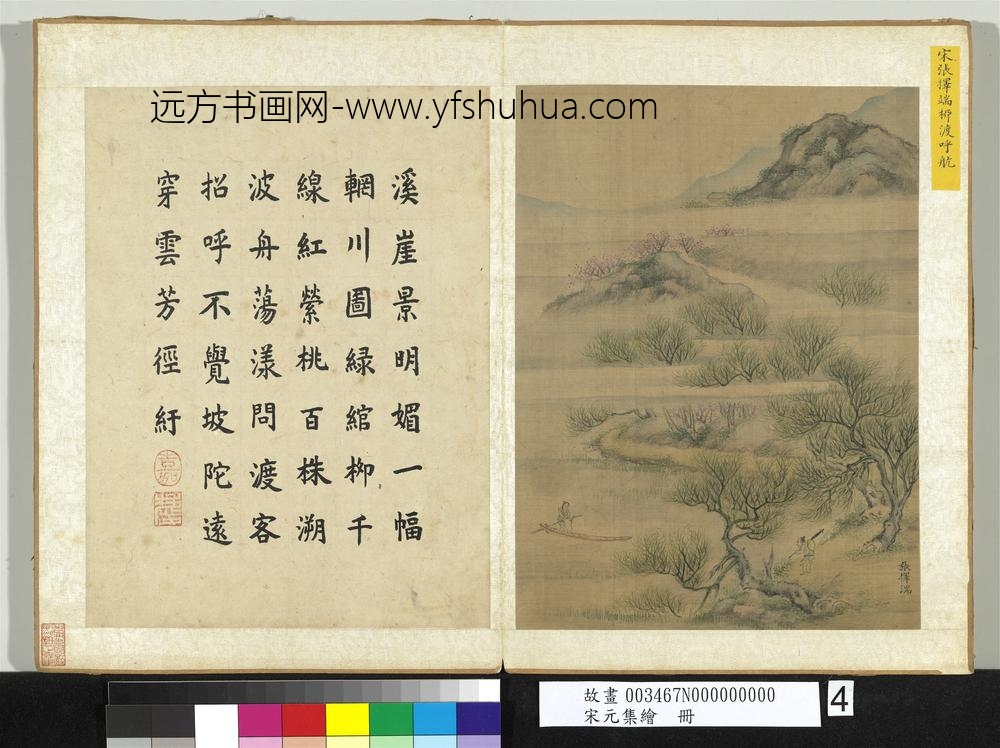 远方书画网-www.yfshuhua.com
宋張擇端柳渡呼航
張擇端
溪崖景明媚一幅
輞川圖緑綰柳千
線紅縈桃百株溯
波舟蕩漾問渡客
招呼不覺坡陀遠
穿雲芳徑紆
故畫 003467N000000000
宋元集繪 冊
4